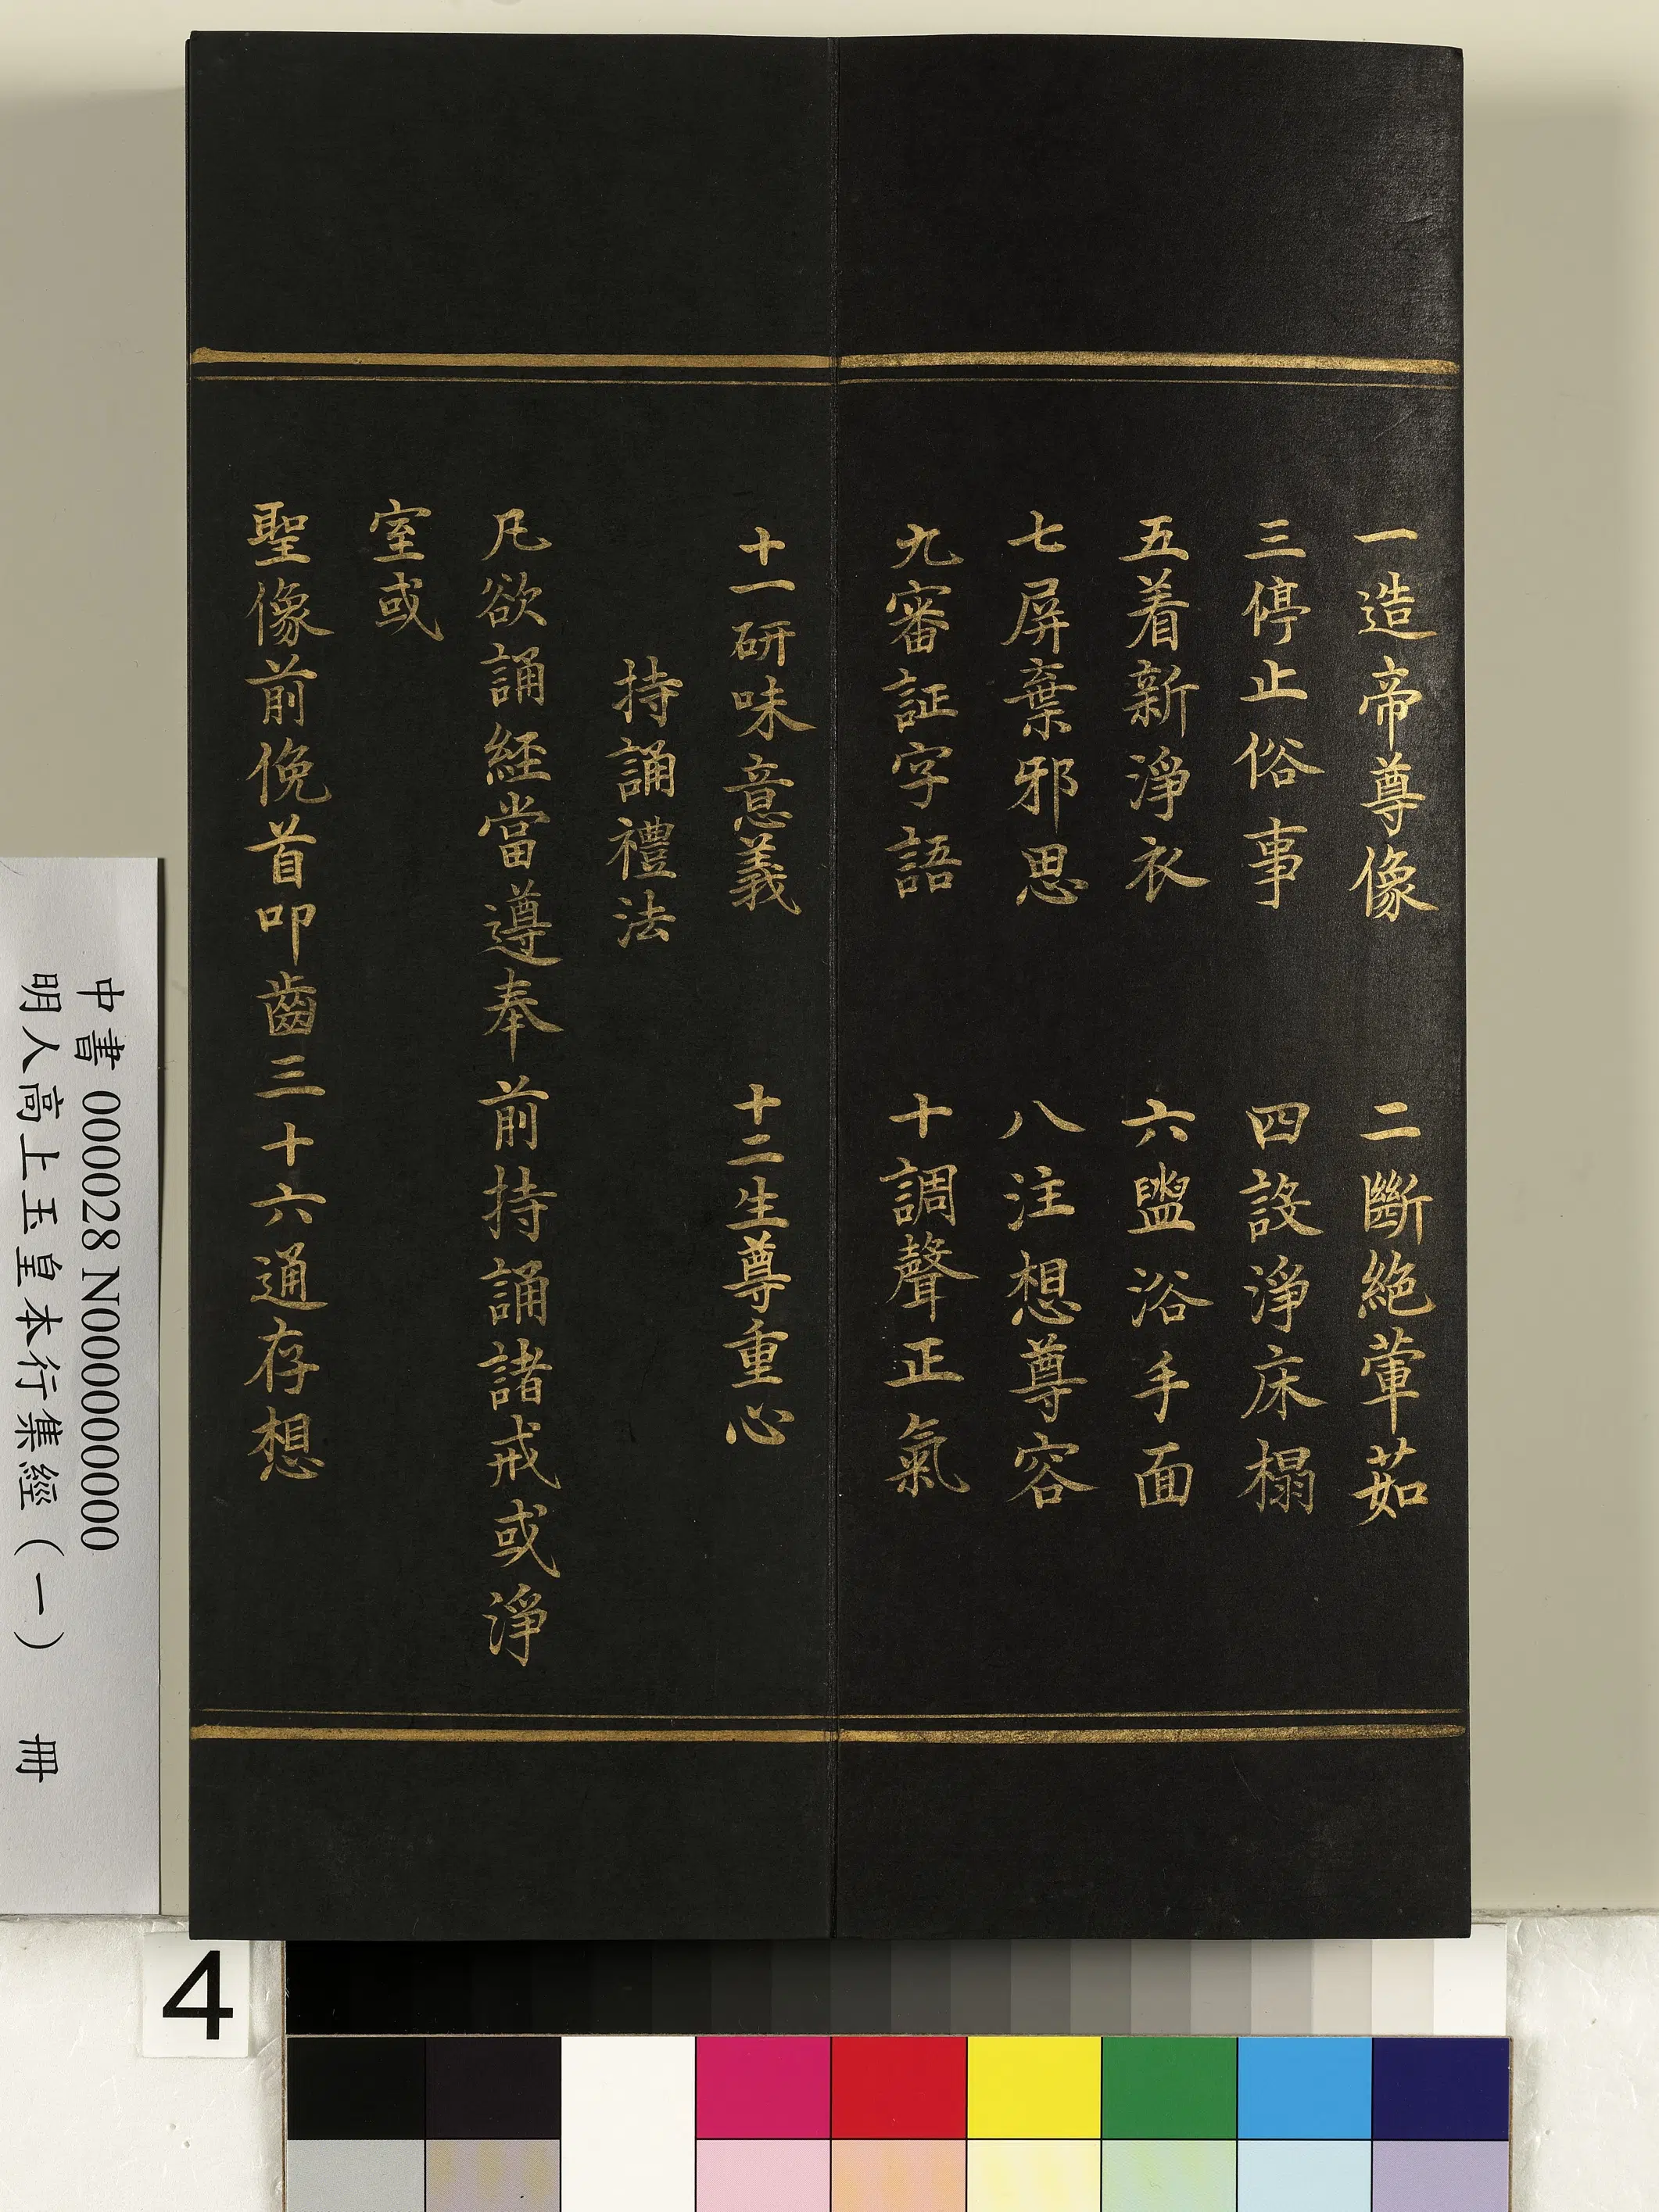 一造帝尊像　二斷絕葷茹
三停止俗事　四設淨床榻
五着新淨衣　六盥浴手面
七屏棄邪思　八注想尊容
九審証字語　十調聲正氣
十一研味意義　十二生尊重心
持誦禮法
凡欲誦經當遵奉前持誦諸戒或淨
室或
聖像前俛首叩齒三十六通存想
中書 000028 N000000000
明人高上玉皇本行集經（一）　冊
4